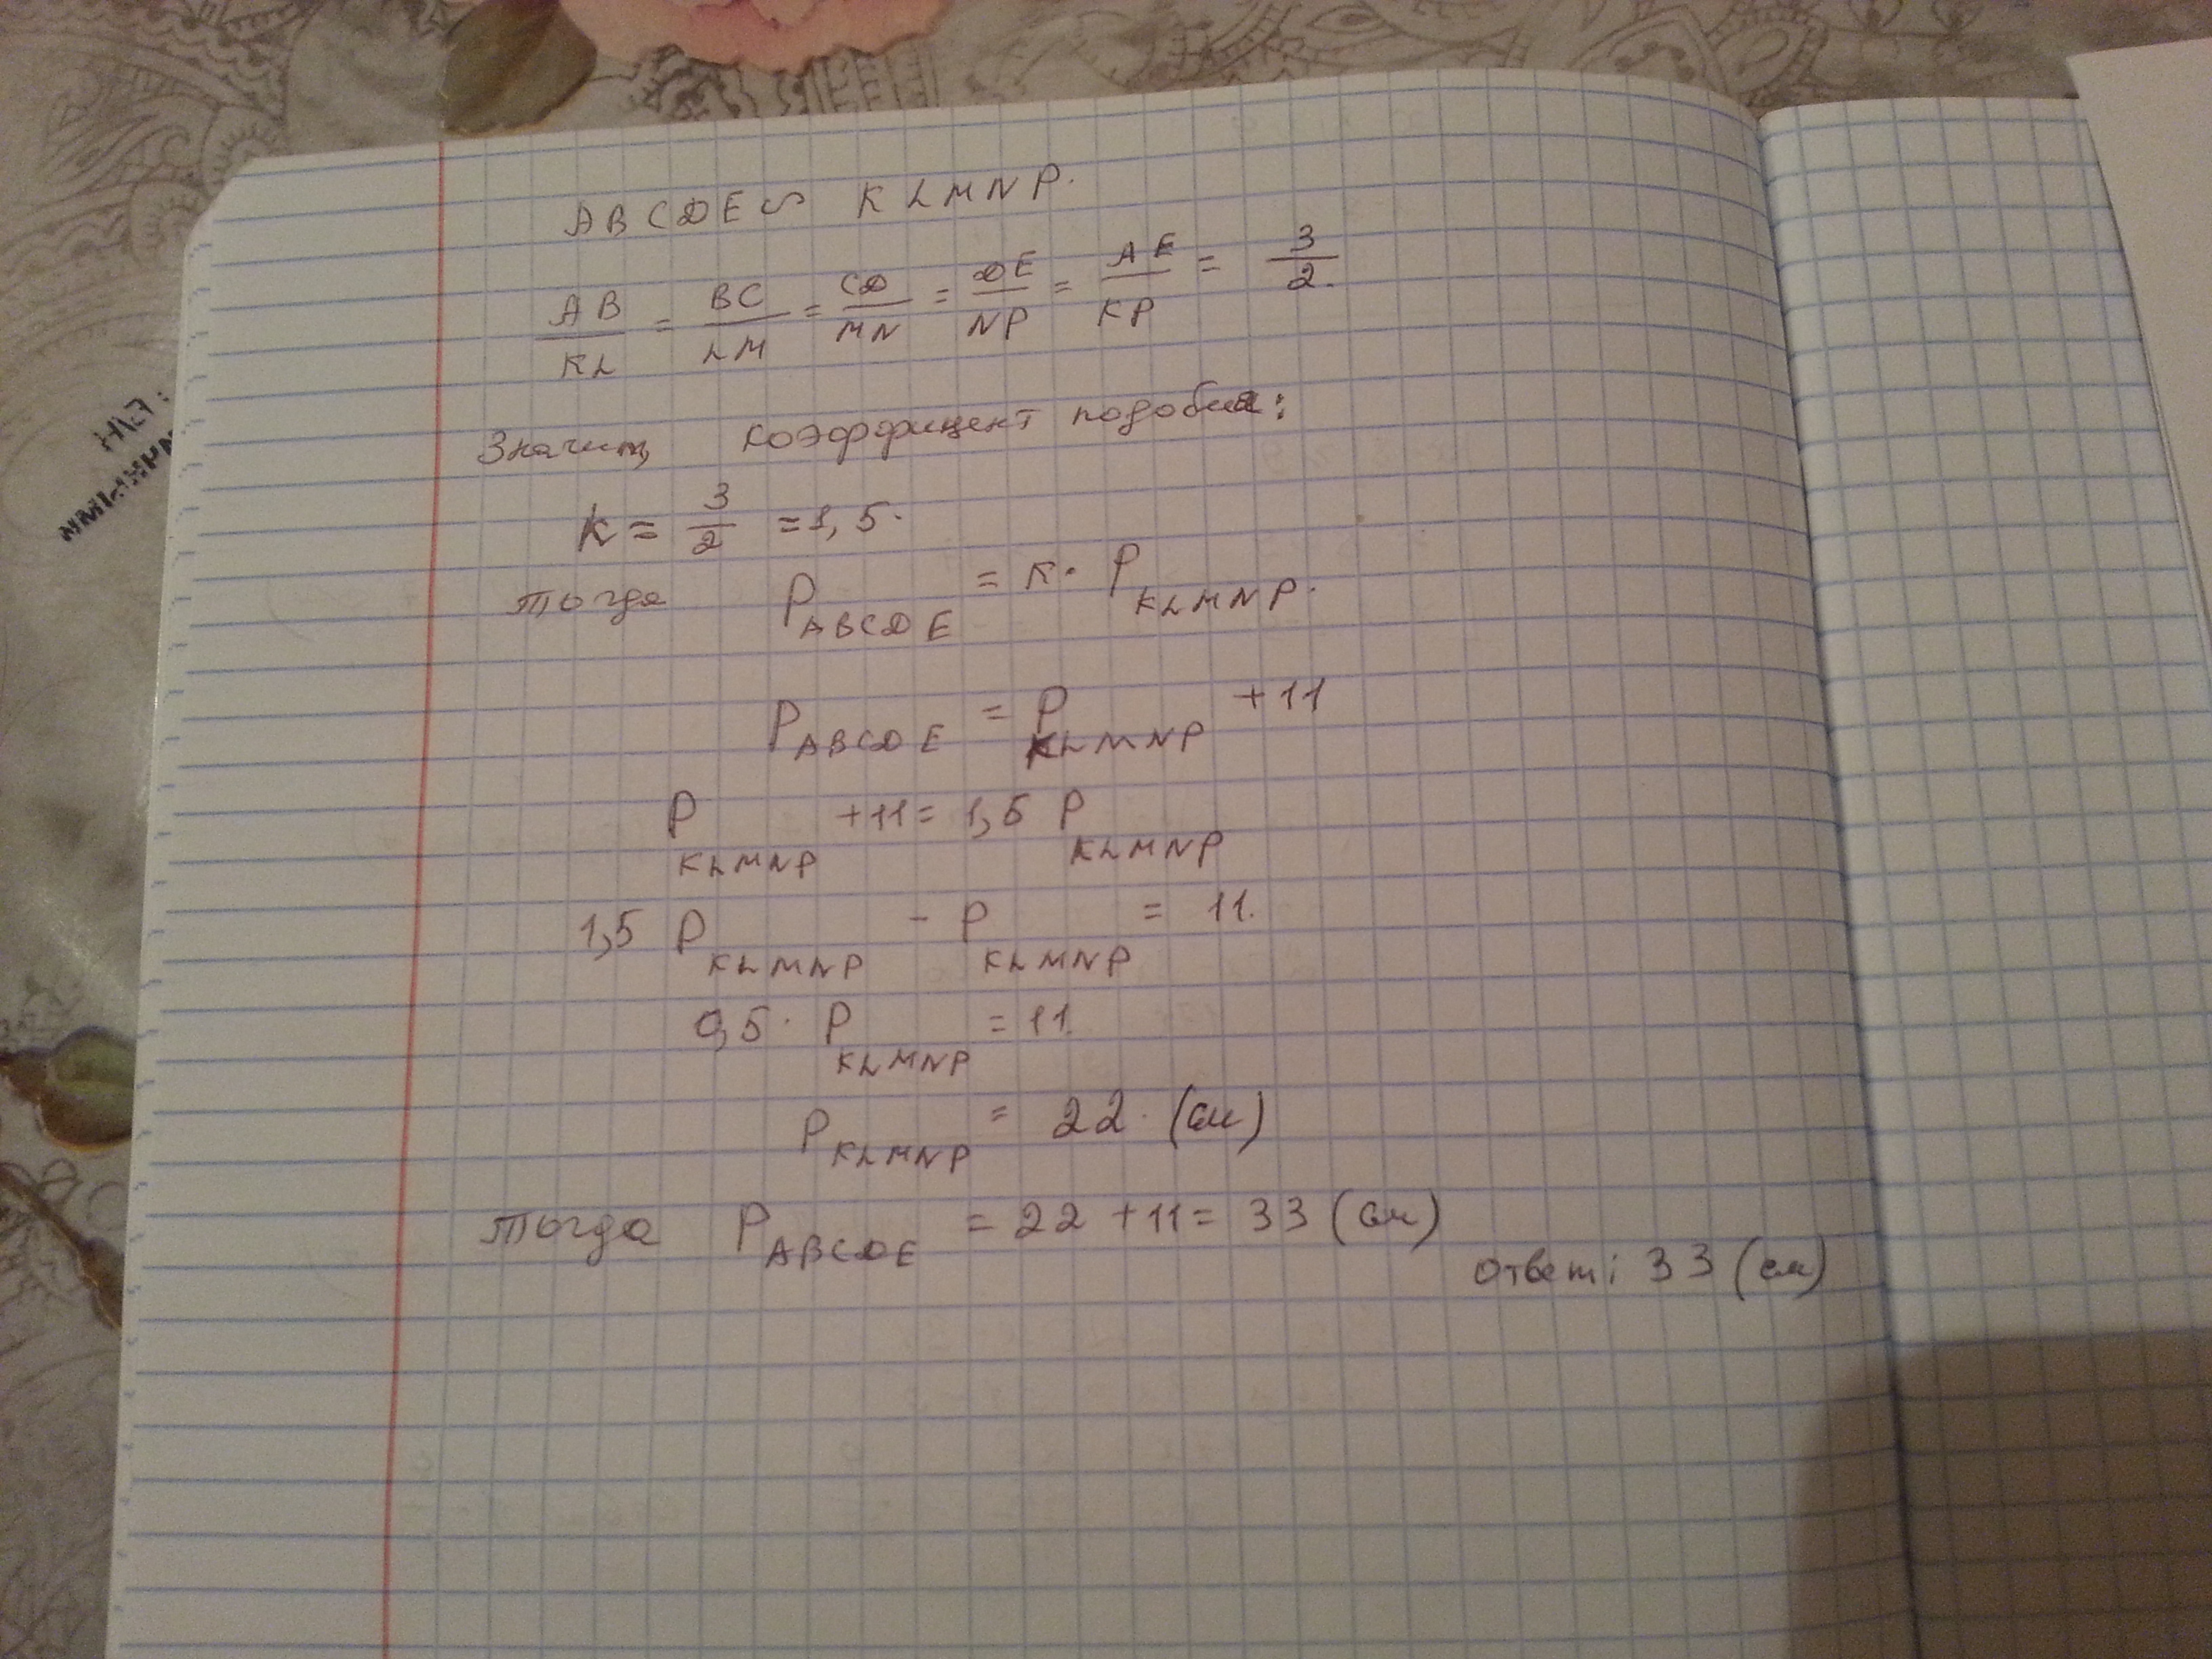 ABCDE ∽ KLMNP.
AB/KL = BC/LM = CD/MN = DE/NP = AE/KP = 3/2.
Значит, коэффицент подобия:
K = 3/2 = 1,5.
тогда P ABCDE = K · P KLMNP.
P ABCDE = P KLMNP + 11
P KLMNP + 11 = 1,5 P KLMNP
1,5 P KLMNP - P KLMNP = 11.
0,5 · P KLMNP = 11.
P KLMNP = 22. (см)
тогда P ABCDE = 22 + 11 = 33 (см)
ответ: 33 (см)